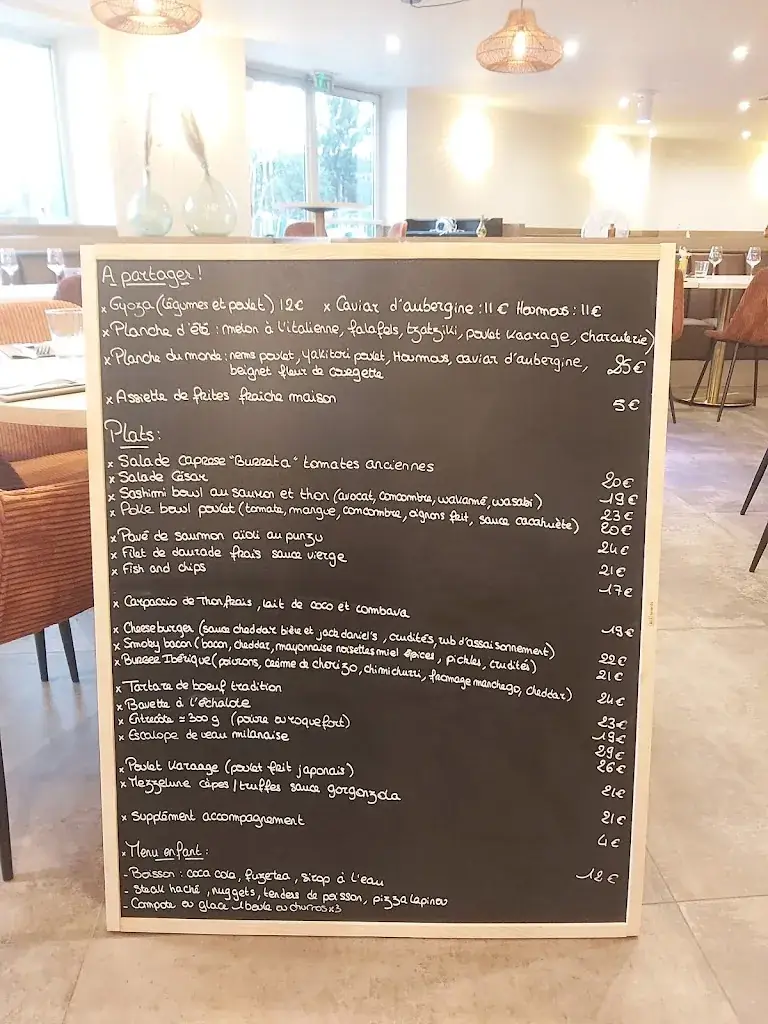 A partager !
x Gyoza (légumes et poulet) 12€ x Caviar d'aubergine : 11 € Houmous : 11€
x Planche d'été : melon à l'italienne, falafels, tzatziki, poulet Kaarage, charcuterie)
x Planche du monde : nems poulet, yakitori poulet, Houmous, caviar d'aubergine, 25€
beignet fleur de courgette
x Assiette de frites fraîche maison 5€
Plats :
x Salade caprese "Burrata" tomates anciennes 20€
x Salade César 19€
x Sashimi bowl au saumon et thon (avocat, concombre, wakamé, wasabi) 23€
x Poke bowl poulet (tomate, mangue, concombre, oignons frit, sauce cacahuète) 20€
x Pavé de saumon aïoli au punzu 24€
x Filet de daurade frais sauce vierge 21€
x Fish and chips 17€
x Carpaccio de Thon frais, lait de coco et combava 19€
x Cheeseburger (sauce cheddar bière et jack daniel's, crudités, rub d'assaisonnement) 22€
x Smoky bacon (bacon, cheddar, mayonnaise noisettes miel épices, pickles, crudités) 21€
x Burger Ibérique (poivrons, crème de chorizo, chimichurri, fromage manchego, cheddar) 24€
x Tartare de boeuf tradition 23€
x Bavette à l'échalote 19€
x Entrecôte ≃ 300 g (poivre ou roquefort) 29€
x Escalope de veau milanaise 26€
x Poulet Karaage (poulet frit japonais) 21€
x Mezzelune cèpes / truffes sauce gorgonzola 21€
x Supplément accompagnement 4€
x Menu enfant : 12€
- Boisson : coca cola, fuzetea, sirop à l'eau
- Steak haché, nuggets, tenders de poisson, pizza lapinou
- Compote ou glace 1 boule ou churros x3